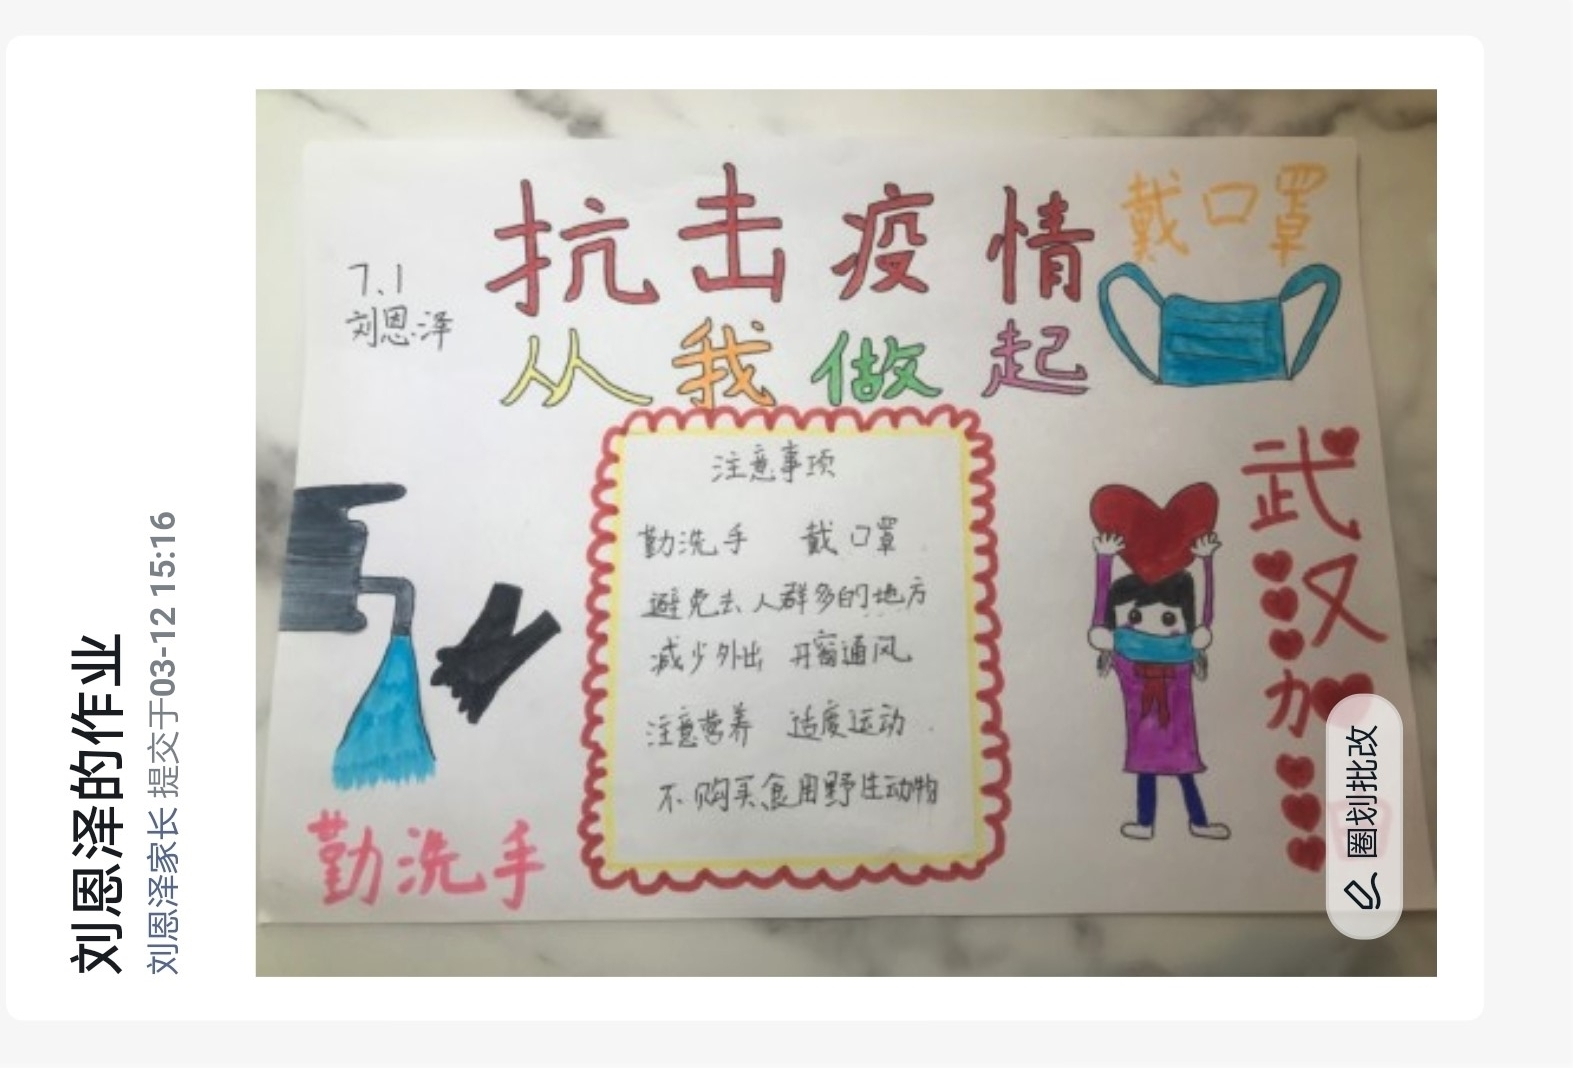 刘恩泽的作业
刘恩泽家长 提交于03-12 15:16
抗击疫情
从我做起
7.1
刘恩泽
戴口罩
注意事项
勤洗手 戴口罩
避免去人群多的地方
减少外出 开窗通风
注意营养 适度运动
不购买食用野生动物
勤洗手
武汉加
圈划批改